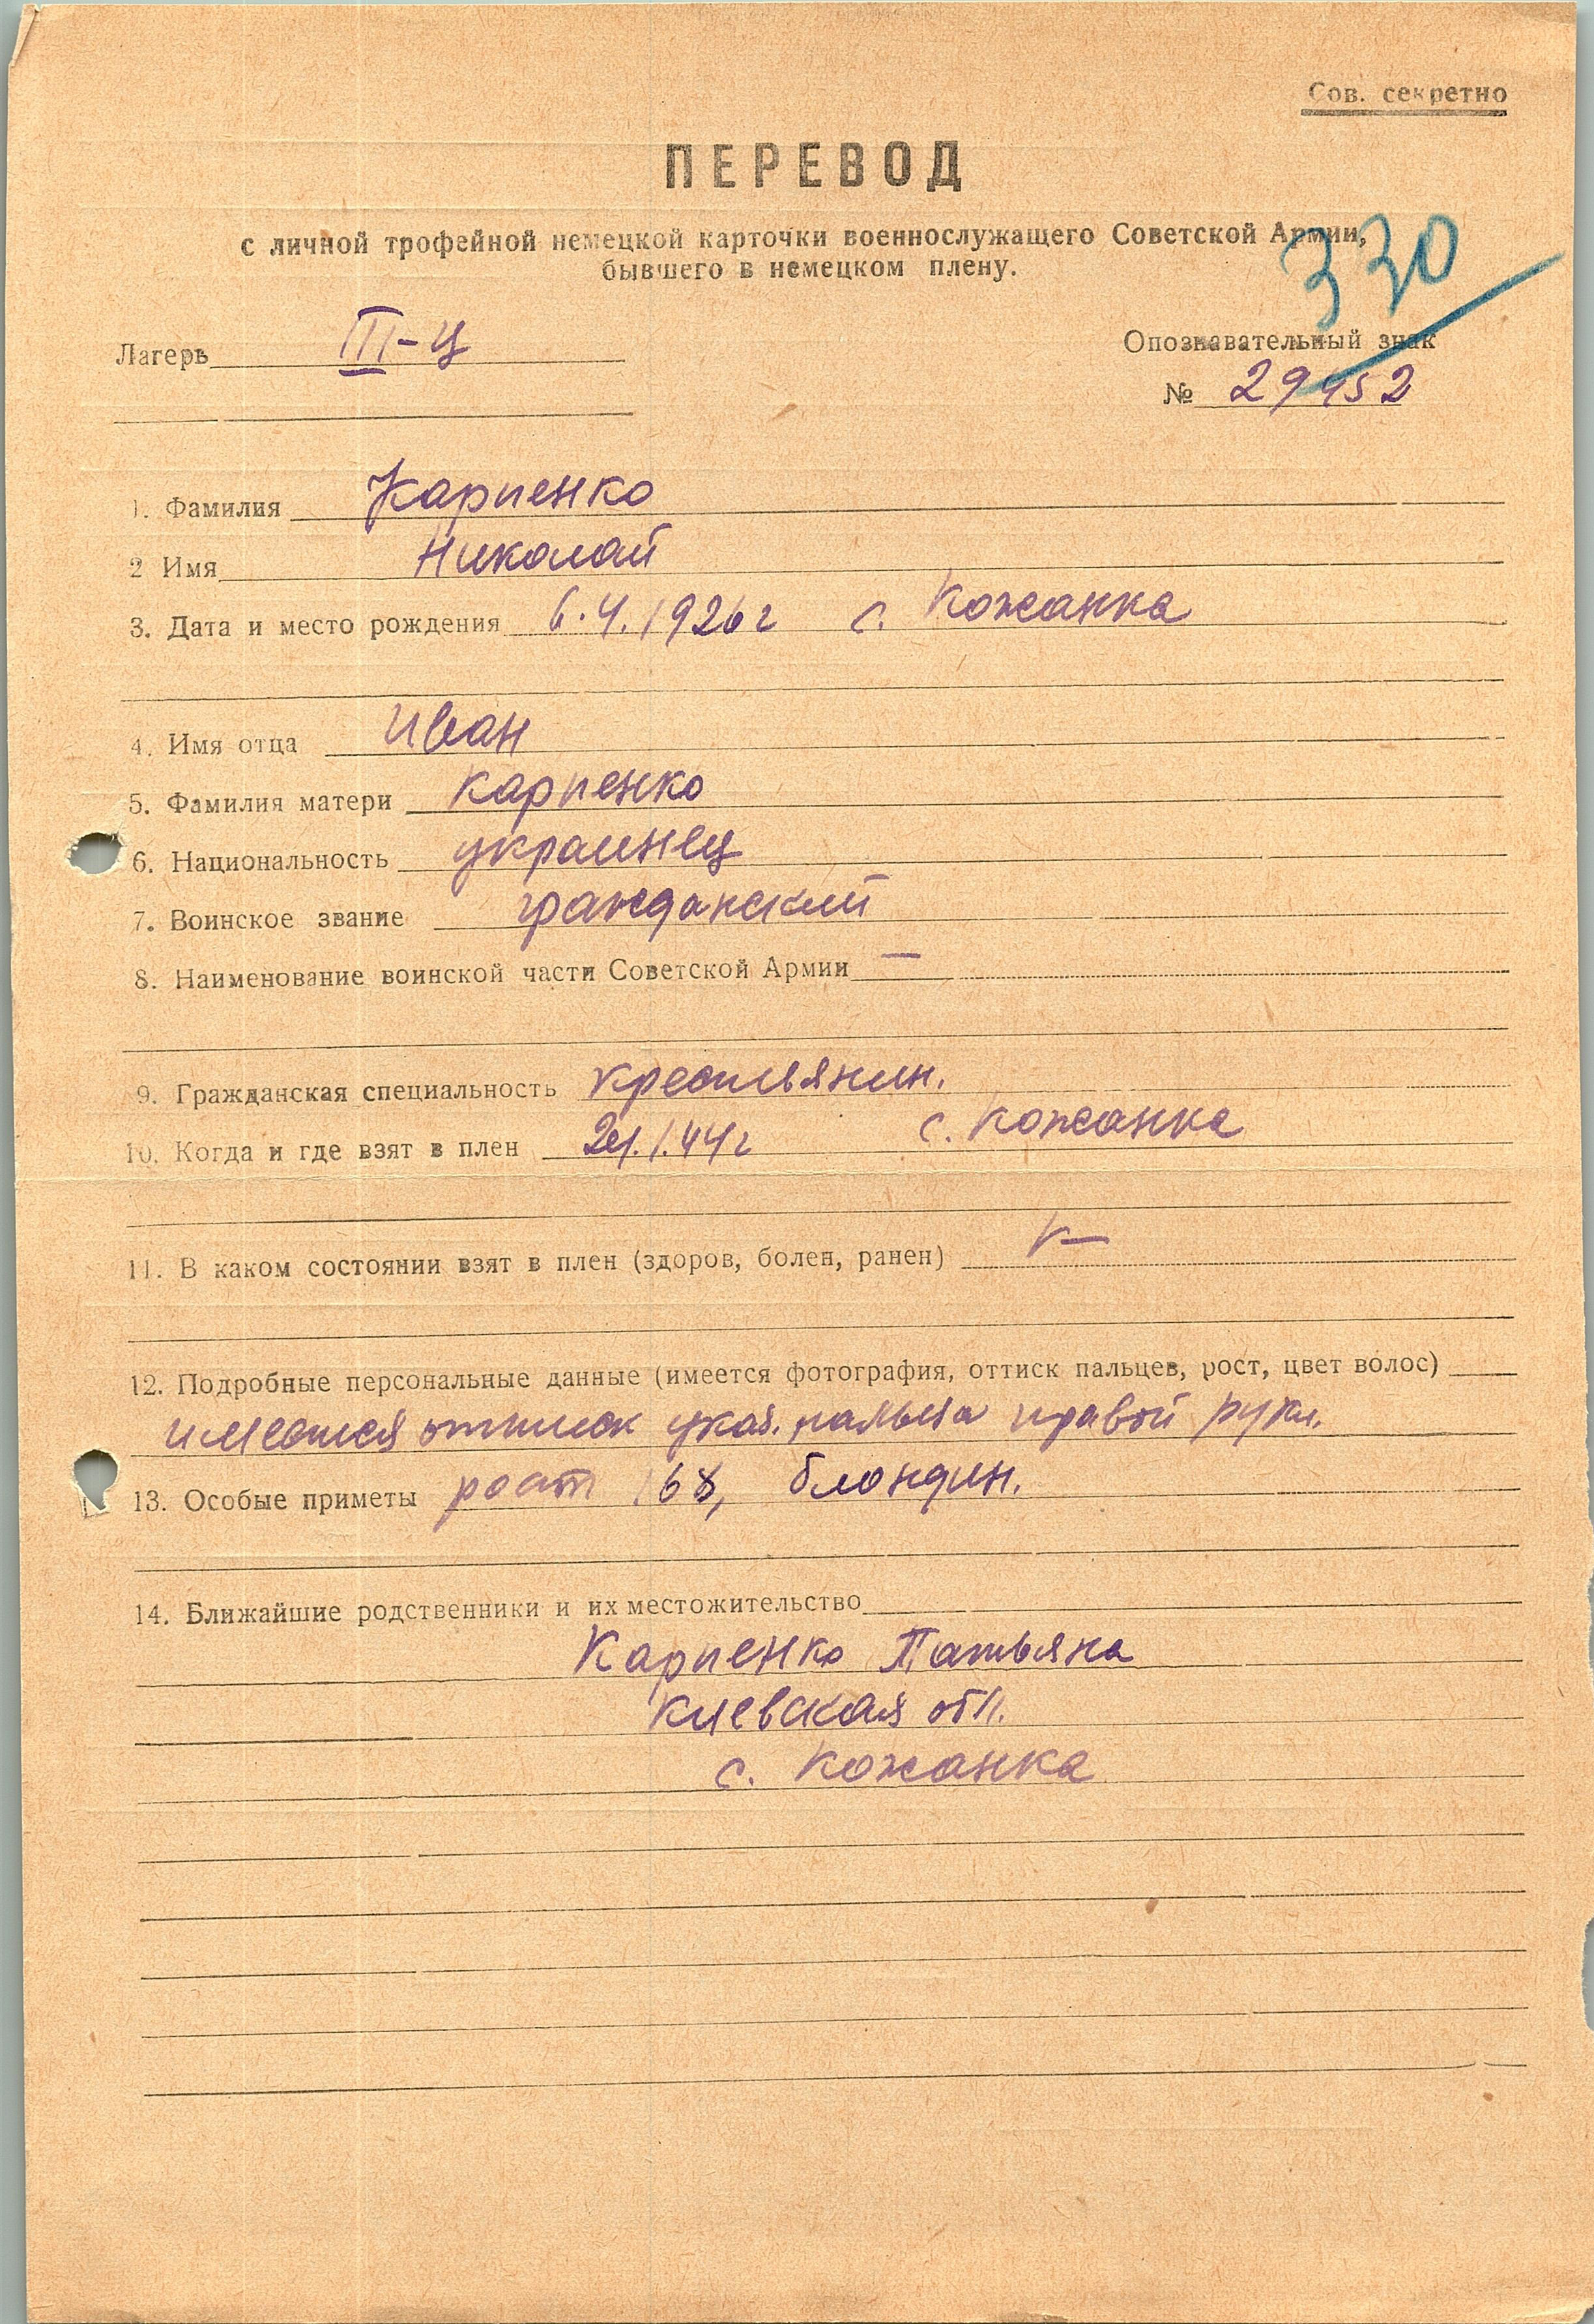 Сов. секретно
ПЕРЕВОД
с личной трофейной немецкой карточки военнослужащего Советской Армии,
бывшего в немецком плену.
330
Лагерь III-Ц
Опознавательный знак
№ 29952
1. Фамилия Карпенко
2 Имя Николай
3. Дата и место рождения 6.4.1926 г с. Кожанка
4. Имя отца Иван
5. Фамилия матери Карпенко
6. Национальность украинец
7. Воинское звание гражданский
8. Наименование воинской части Советской Армии —
9. Гражданская специальность крестьянин.
10. Когда и где взят в плен 1.44 г с. Кожанка
11. В каком состоянии взят в плен (здоров, болен, ранен)
12. Подробные персональные данные (имеется фотография, оттиск пальцев, рост, цвет волос)
имеется оттиск указ. пальца правой руки.
13. Особые приметы рост 168, блондин.
14. Ближайшие родственники и их местожительство
Карпенко Татьяна
Киевская обл.
с. Кожанка